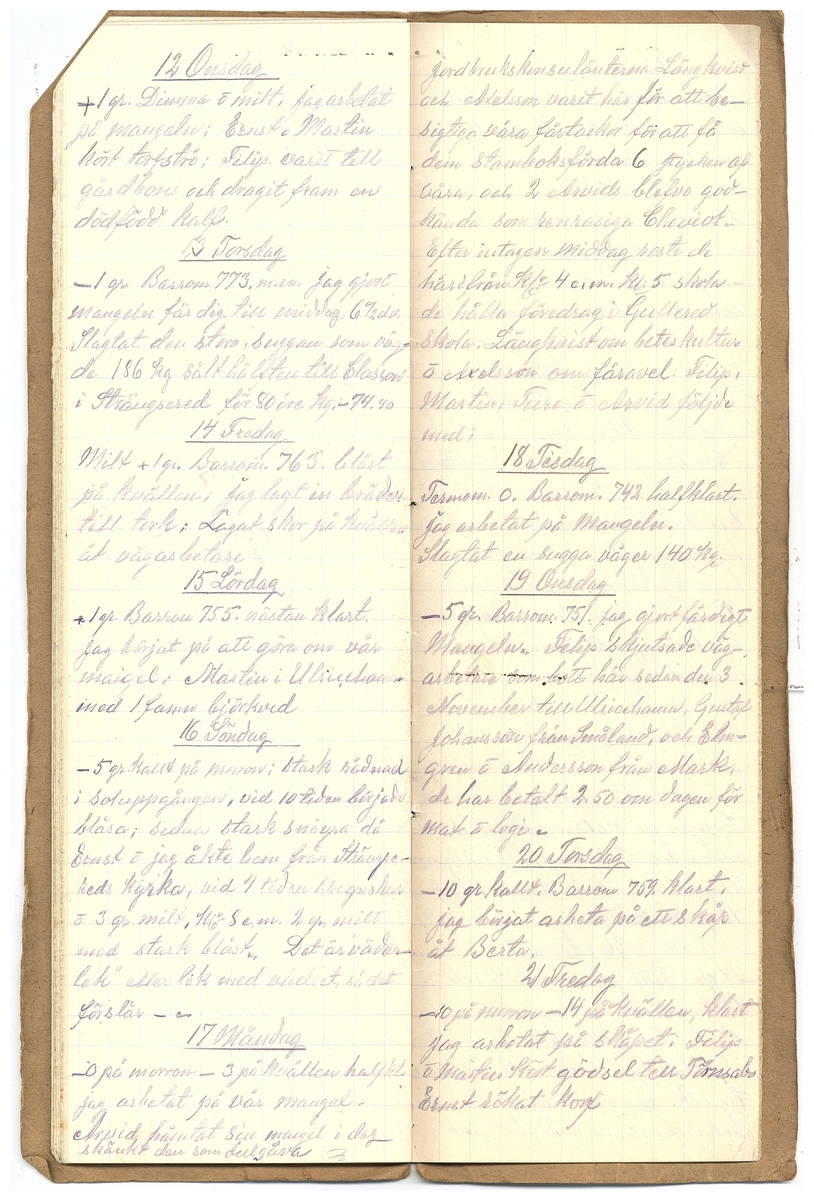 12 Onsdag
+1 gr. Dimma õ milt, jag arbetat
på mangeln; Ernst o Martin
kört torfströ; Filip varit till
gårdbons och dragit fram en
dödfödd kalf.
13 Torsdag
–1 gr. Barrom 773. m.m. jag gjort
mangeln färdig till middag. 6 ½ dv.
Slagtat den stora suggan som väg-
de 186 kg sålt hälften till Classon
i Strängsered för 80 öre kg. – 74.40
14 Fredag
Milt +1 gr. Barrom. 763. blåst
på kvällen; jag lagt in bräder
till tork; Lagat skor på kvällen
åt vägarbetare
15 Lördag
+1 gr. Barrom 755. nästan klart.
jag börjat på att göra om vår
mangel. Martin i Ulricehamn
med 1 famn björkved
16 Söndag
–5 gr. kallt på morron; stark rådnad
i soluppgången, vid 10 tiden började
blåsa; sedan stark snöyra då
Ernst õ jag åkte hem från Strängse-
reds Kyrka, vid 4 tiden
õ 3 gr. milt, Klo 8 e.m. 2 gr. milt
med stark blåst. Det är väder-
lek" eller lek med vädret, så det
förslår –
17 Måndag
–0 på morron –3 på kvällen halfkl
jag arbetat på vår mangel.
Arvid hämtat sin mangel i dag
skänkt den som julgåva
jordbrukskonsulenterna Långkvist
och Axelsson varit här för att be-
sigtiga våra fårtackor för att få
dem stamboksförda 6 stycken af
våra, och 2 Arvids blefvo god-
kända som renrasiga Cheviot.
Efter intagen middag reste de
härifrån Klo 4 e.m. Kl. 5 skola
de hålla föredrag i Gullered
skola. Långkvist om beteskultur
õ Axelsson om fåravel. Filip,
Martin, Ture õ Arvid följde
med;
18 Tisdag
Termom. 0. Barrom. 742 halfklart.
jag arbetat på Mangeln.
Slagtat en sugga väger 140 kg.
19 Onsdag
–5 gr. Barrom. 751. jag gjort färdigt
Mangeln. Filip skjutsade väg-
arbetare som bott här sedan den 3
November till Ulricehamn, Gustaf
Johansson från Småland, och Elm-
gren õ Andersson från Mark,
de har betalt 2.50 om dagen för
mat õ logi
20 Torsdag
–10 gr kallt. Barrom 759. klart.
jag börjat arbeta på ett skåp
åt Berta.
21 Fredag
–10 på morron –14 på kvällen, klart
jag arbetat på skåpet; Filip
õ Martin kört gödsel till Törnsabo
Ernst rökat korf